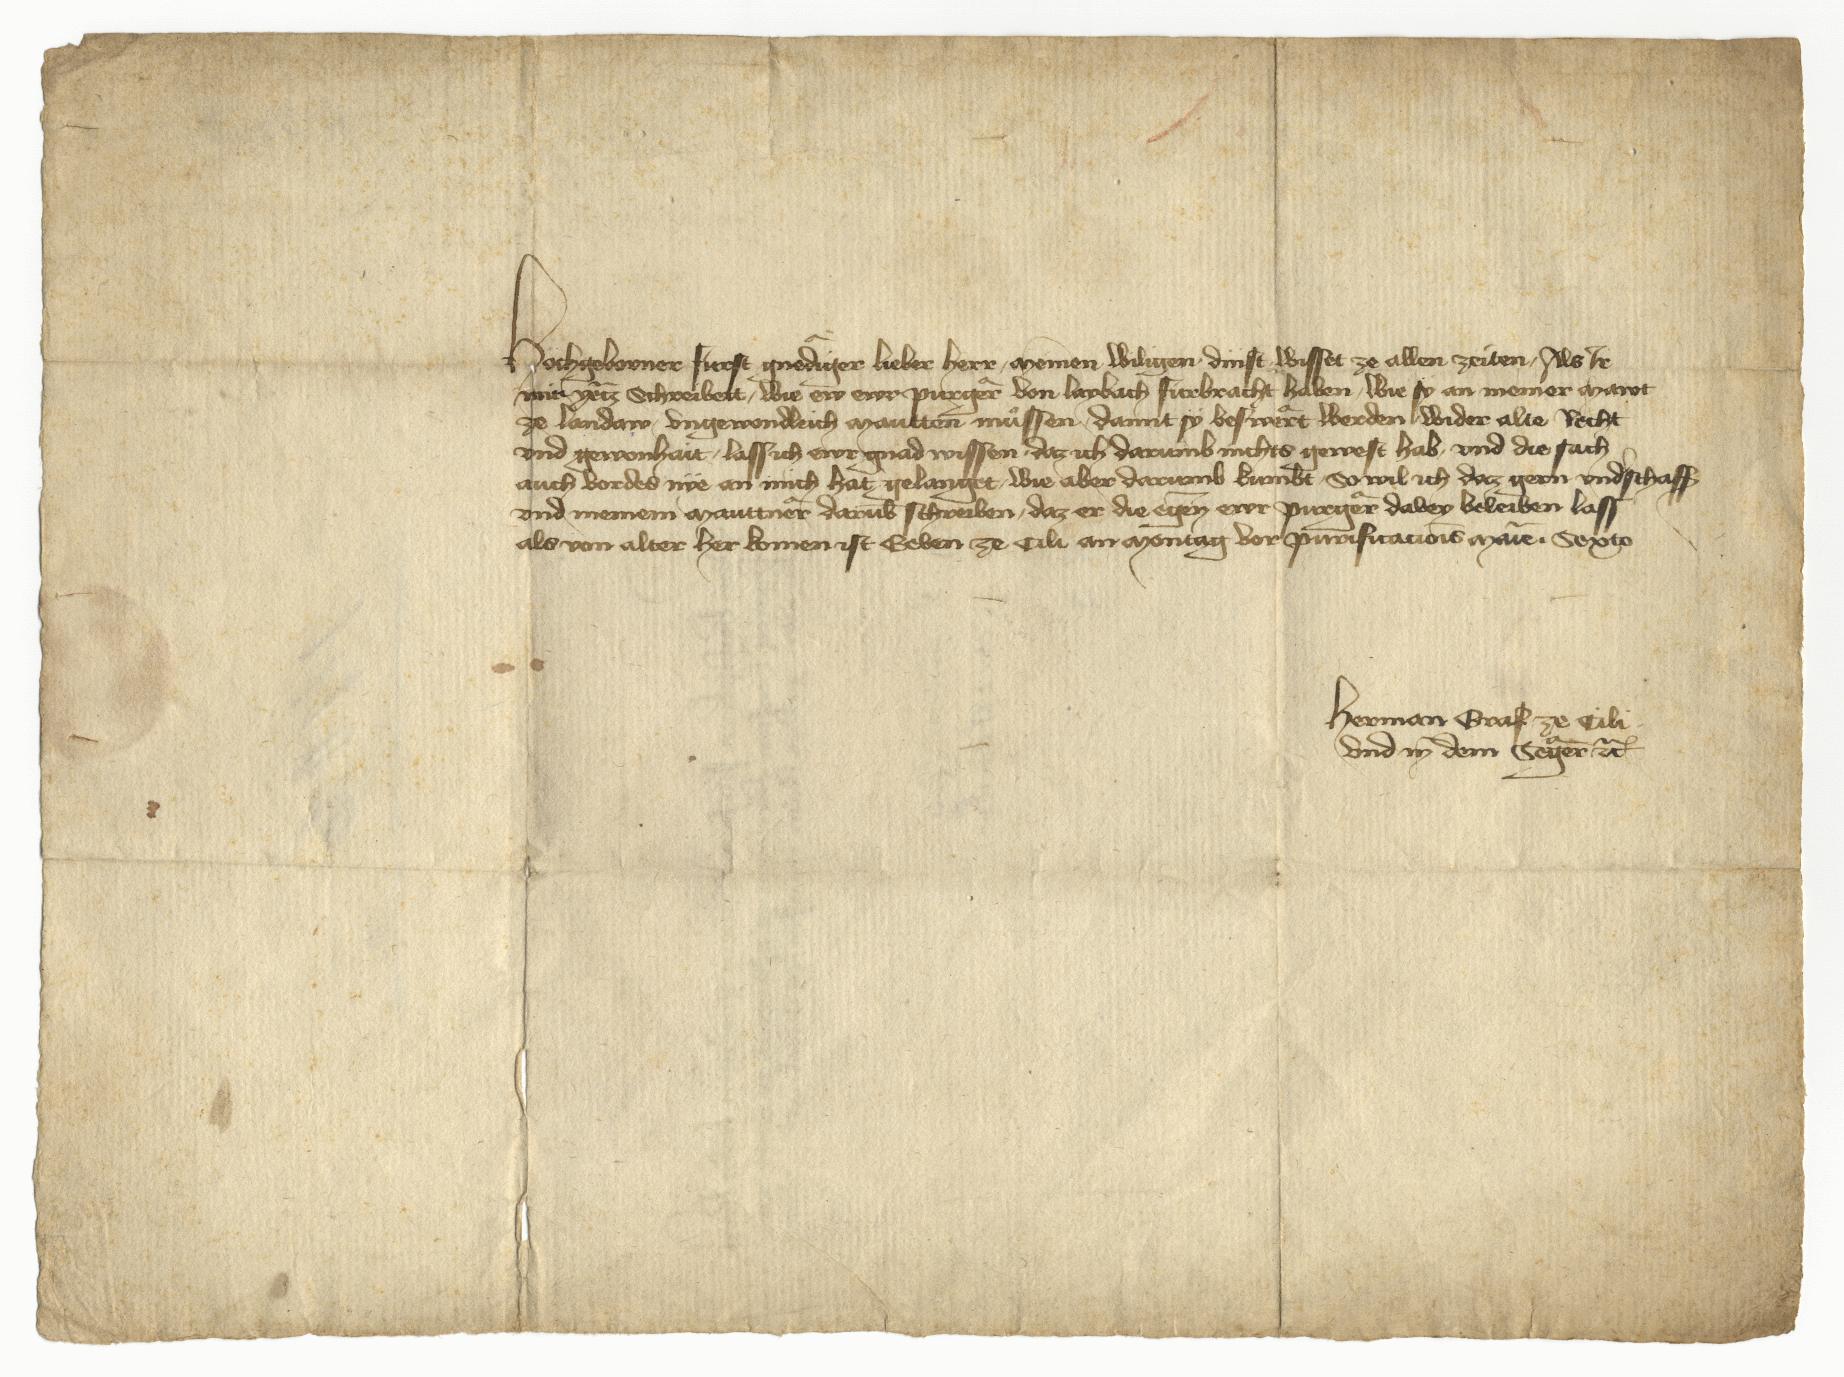 Hochgeborner furst gnediger lieber herr, meinen willigen dinst wisset ze allen zeiten, Als Ir
mir yecz Schreibett, wie ew ewr purger von laybach furbracht haben, wie sy an meiner mawt
ze landaw, ungewondleich mautten müssen, damit sy beswert werden wider alte Recht
und gewonhait, lass ich ewr gnad wissen daz ich darumb nichts gewest hab, und die sach
auch vordes nye an mich hat gelanget, wie aber darumb kumbt, So wil ich daz gern und schaff
und meinem mauttner darub schreiben, daz er die egen ewr purger dabey beleiben lass
als von alter her komen ist Geben ze Cili an Montag vor purificacionis marie. Sexto
Herman Graf ze Cili
und in dem Seger etc